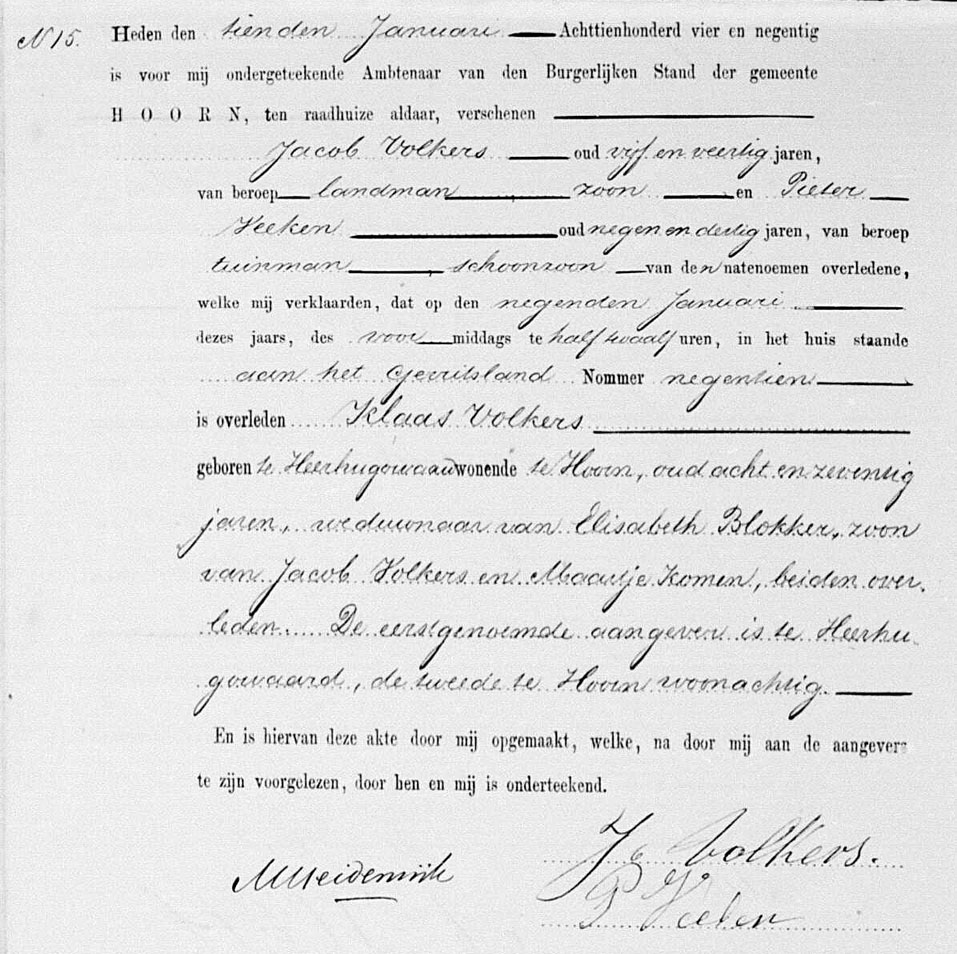 N 15. Heden den tienden Januari Achttienhonderd vier en negentig
is voor mij ondergeteekende Ambtenaar van den Burgerlijken Stand der gemeente
HOORN, ten raadhuize aldaar, verschenen
Jacob Volkers oud vijf en veertig jaren,
van beroep landman, zoon en Pieter
Veeken oud negen en dertig jaren, van beroep
tuinman, schoonzoon van den natenoemen overledene,
welke mij verklaarden, dat op den negenden Januari
dezes jaars, des voor middags te half twaalf uren, in het huis staande
aan het Gerritsland Nommer negentien
is overleden Klaas Volkers
geboren te Heerhugowaard wonende te Hoorn, oud acht en zeventig
jaren, weduwnaar van Elisabeth Blokker, zoon
van Jacob Volkers en Maartje Komen, beiden over-
leden. De eerstgenoemde aangever is te Heerhu-
gowaard, de tweede te Hoorn woonachtig.
En is hiervan deze akte door mij opgemaakt, welke, na door mij aan de aangevers
te zijn voorgelezen, door hen en mij is onderteekend.
J Volkers.
P